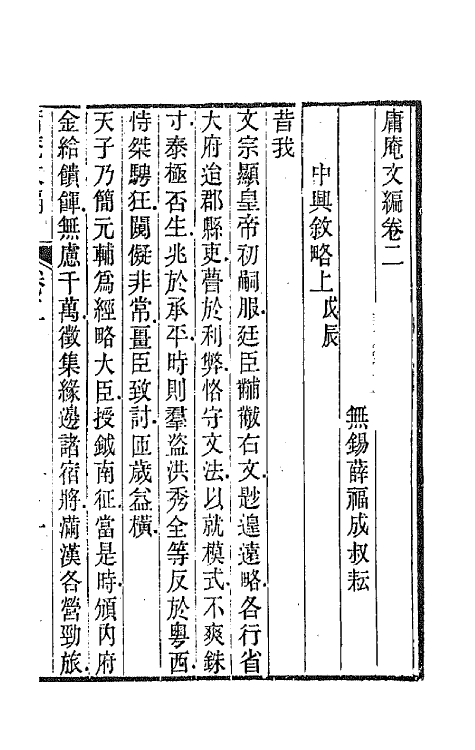 庸庵文編卷二
無錫薛福成叔耘
中興敘略上戊辰
昔我
文宗顯皇帝初嗣服廷臣黼黻右文尟遑遠略各行省
大府迨郡縣吏瞢於利弊恪守文法以就模式不爽銖
寸泰極否生兆於承平時則羣盜洪秀全等反於粵西
恃桀騁狂闖儗非常畺臣致討匝歲益橫
天子乃簡元輔爲經略大臣授鉞南征當是時頒內府
金給饋餫無慮千萬徵集緣邊諸宿將滿漢各營勁旅